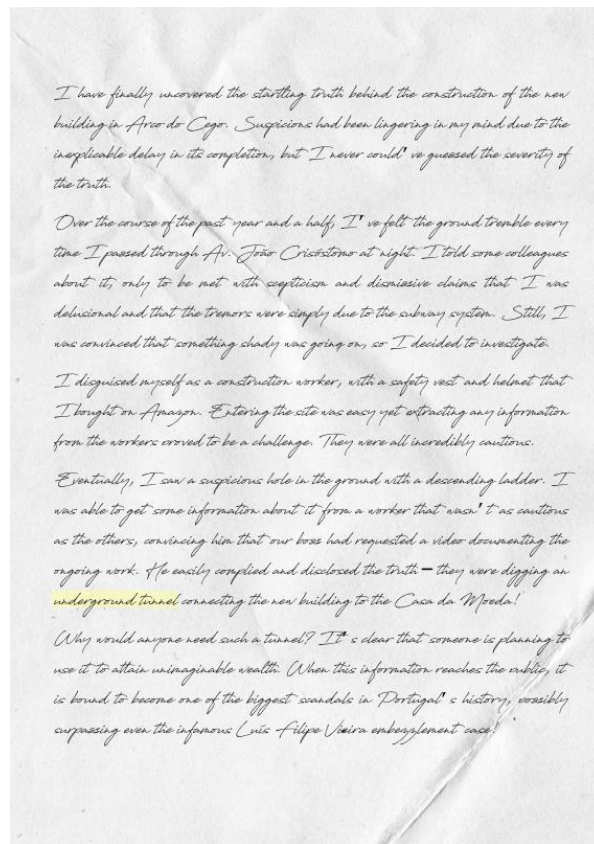 I have finally uncovered the startling truth behind the construction of the new
building in Arco do Cego. Suspicions had been lingering in my mind due to the
inexplicable delay in its completion, but I never could've guessed the severity of
the truth.
Over the course of the past year and a half, I've felt the ground tremble every
time I passed through Av. João Crisóstomo at night. I told some colleagues
about it, only to be met with scepticism and dismissive claims that I was
delusional and that the tremors were simply due to the subway system. Still, I
was convinced that something shady was going on, so I decided to investigate.
I disguised myself as a construction worker, with a safety vest and helmet that
I bought on Amazon. Entering the site was easy yet extracting any information
from the workers proved to be a challenge. They were all incredibly cautious.
Eventually, I saw a suspicious hole in the ground with a descending ladder. I
was able to get some information about it from a worker that wasn't as cautious
as the others, convincing him that our boss had requested a video documenting the
ongoing work. He easily complied and disclosed the truth – they were digging an
underground tunnel connecting the new building to the Casa da Moeda!
Why would anyone need such a tunnel? It's clear that someone is planning to
use it to attain unimaginable wealth. When this information reaches the public, it
is bound to become one of the biggest scandals in Portugal's history, possibly
surpassing even the infamous Luís Filipe Vieira embezzlement case!